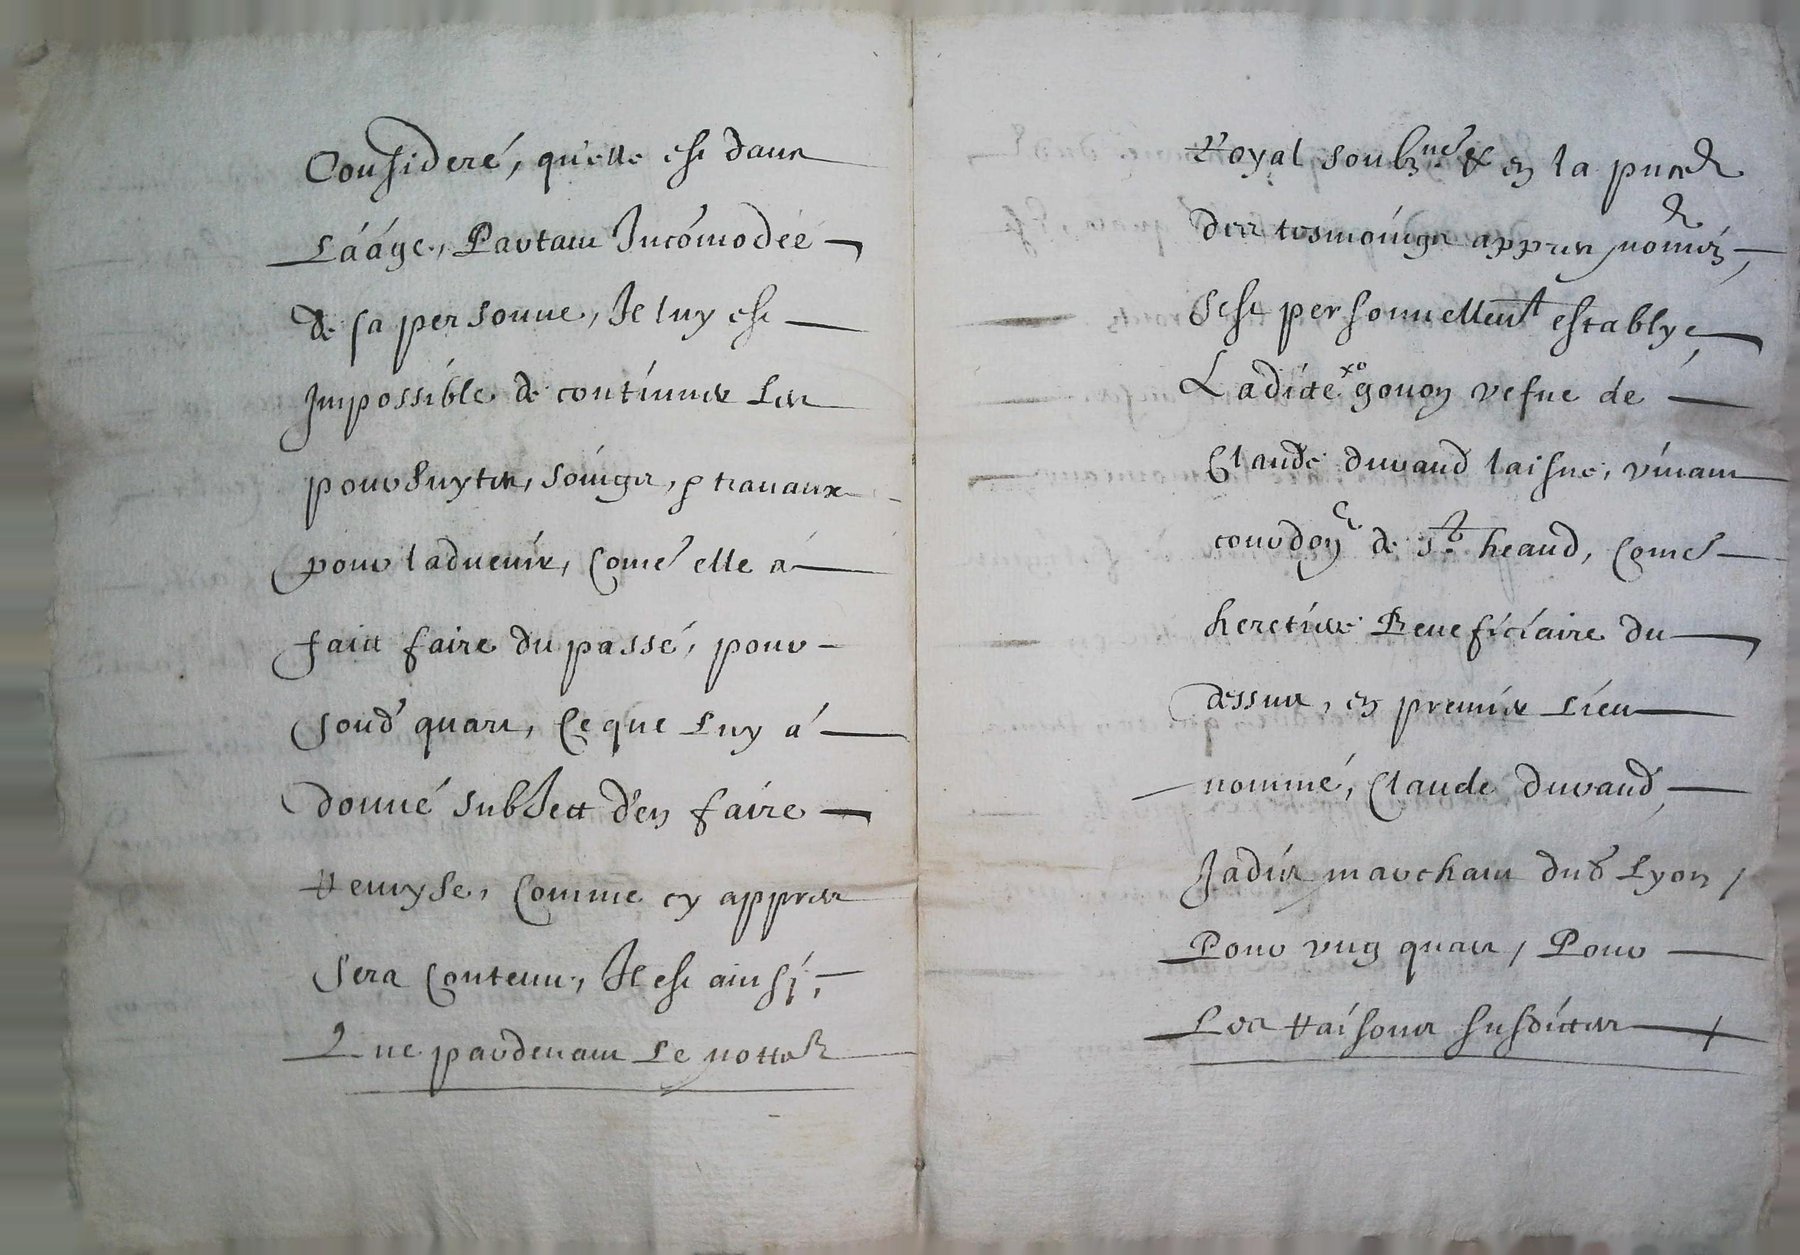 Consideré, qu'elle est dans
L'aáge, Partant Incómodéé
de sa personne, Il luy est
Impossible de continuer Les
poursuytes, soings, & travaux
pour l'advenir, Comé elle á
faict faire du passé, pour
sond' quart, Ce que Luy á
donné subject d'en faire
remyse, Comme cy appres
sera Contenu, Il est ainsi,
Que pardevant Le nottoe
Royal soubzné & en la pnce
des tesmoings appres nómez,
S'est personnellemt establye
Ladicte xo gonon vefue de
Claude durand laisné, vivant
courdoer de St heand, Comé
heretiere Beneficiaire du
dessus, en premier Lieu
nommé, Claude durand,
Jadis marchant dud' Lyon,
Pour ung quart, Pour
Les raisons susdictes